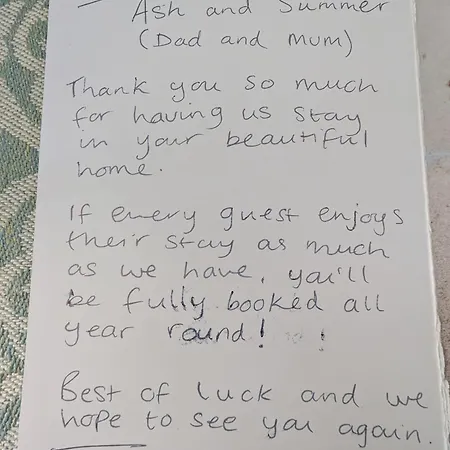 Ash and Summer
(Dad and Mum)
Thank you so much
for having us stay
in your beautiful
home.
If every guest enjoys
their stay as much
as we have, you'll
be fully booked all
year round! !
Best of luck and we
hope to see you again.